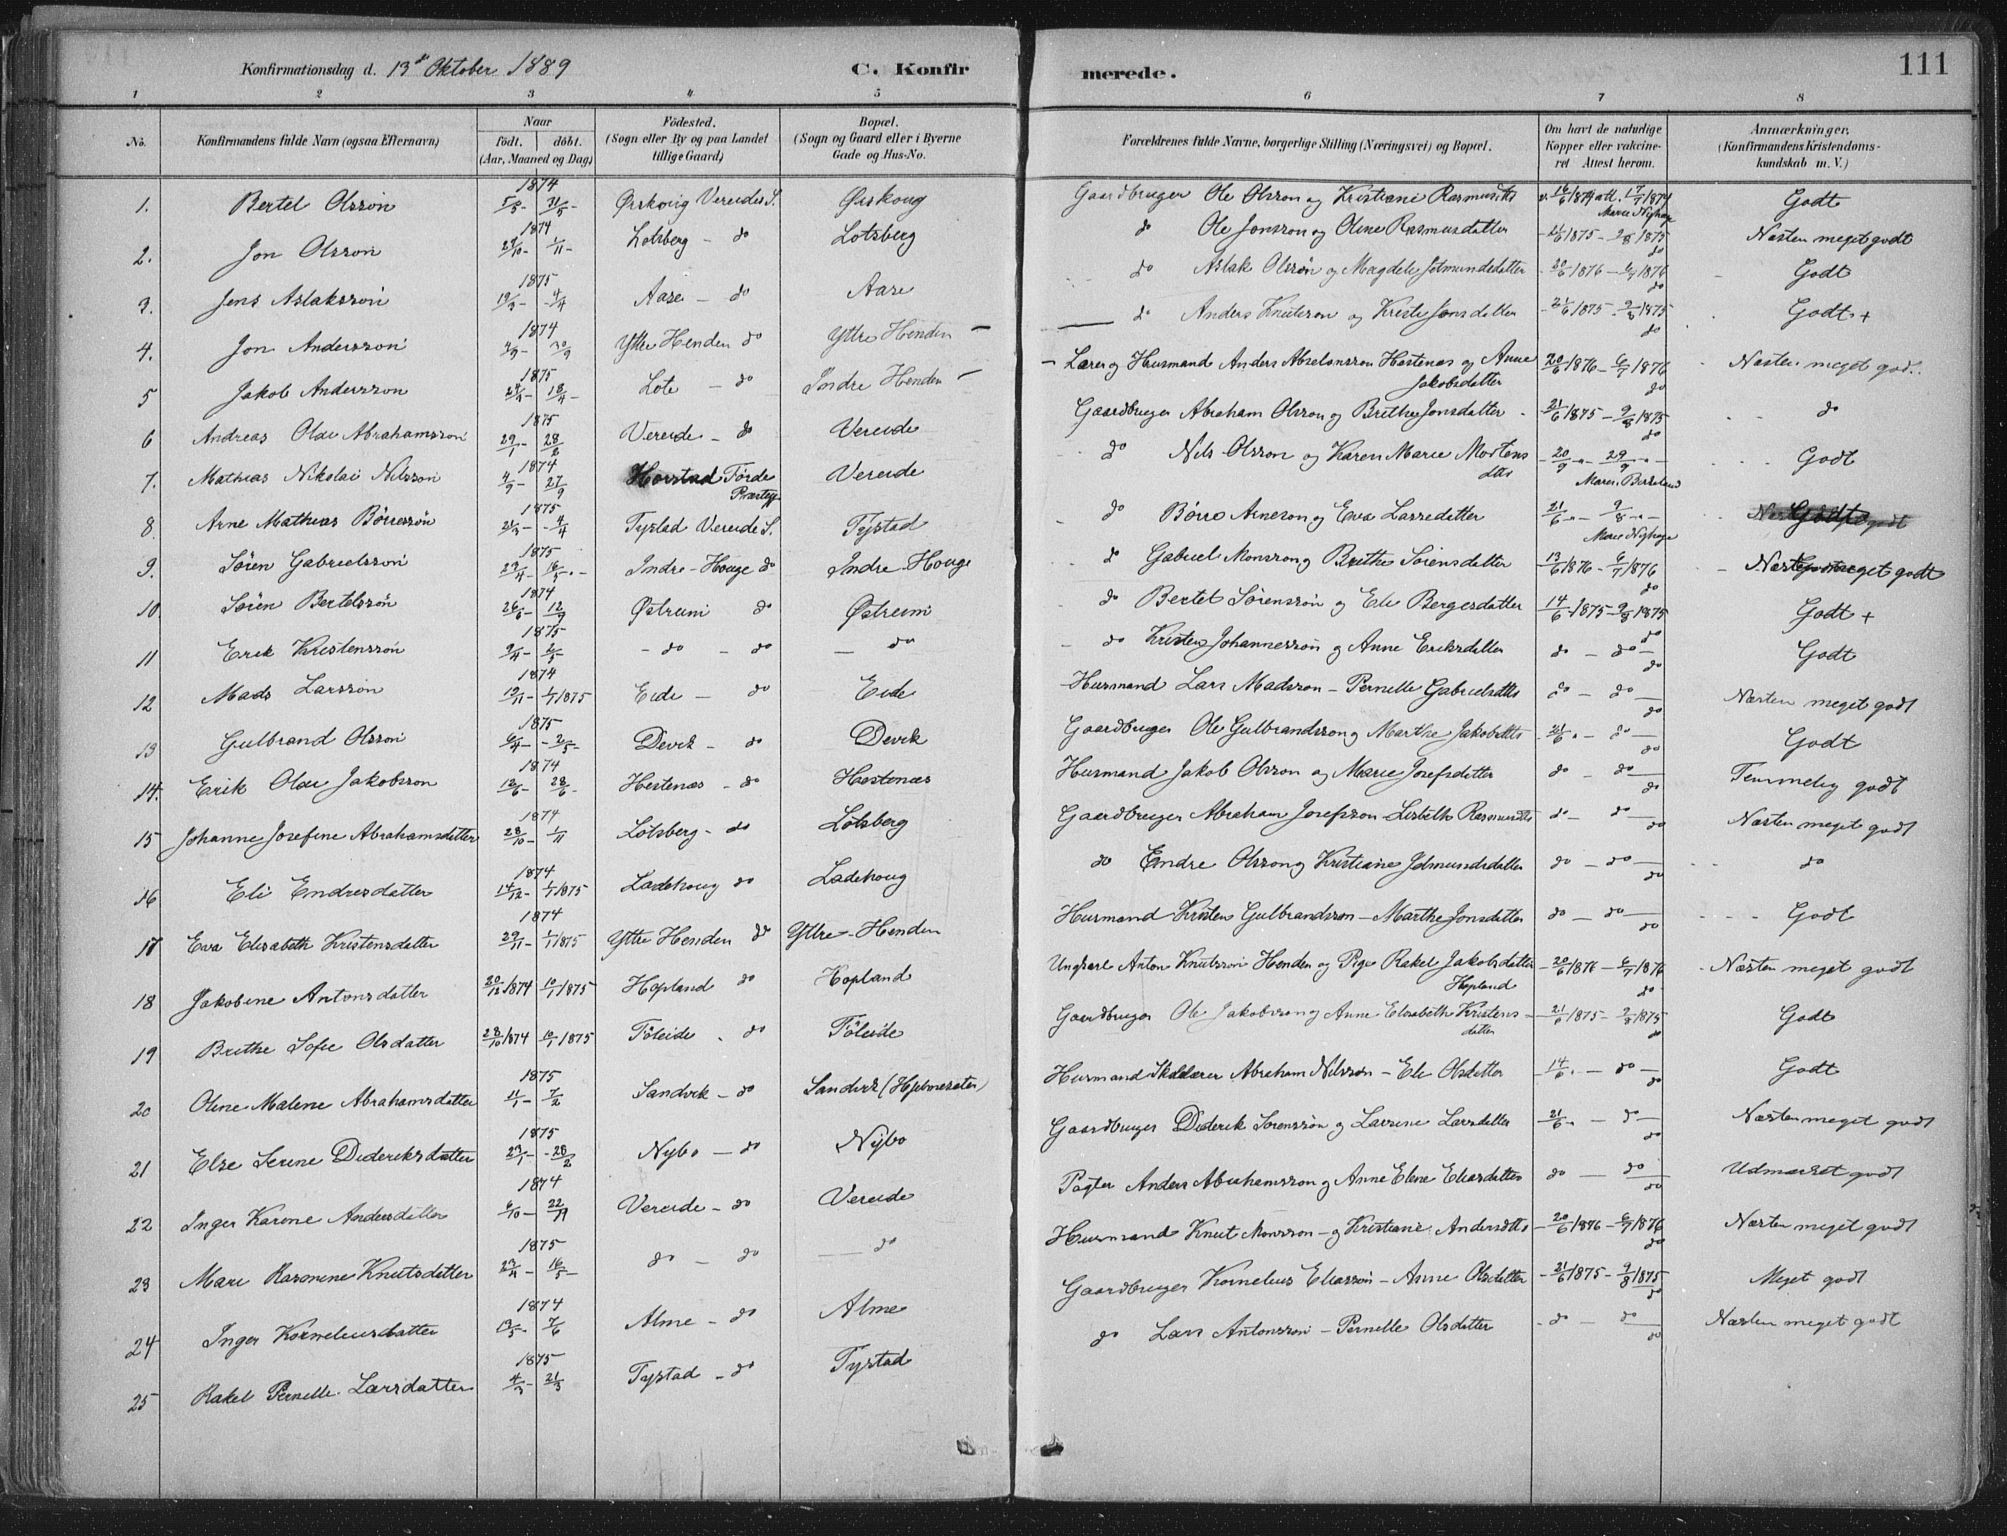 Konfirmationsdag d. 13de Oktober 1889 C. Konfir merede. 111
1 2 3 4 5 6 7 8
No. Konfirmandens fulde Navn (ogsaa Efternavn) Naar født. døbt. (Aar, Maaned og Dag) Fødested. (Sogn eller By og paa Landet tillige Gaard) Bopæl. (Sogn og Gaard eller i Byerne Gade og Hus-No. Forældrenes fulde Navne, borgerlige Stilling (Næringsvei) og Bopæl. Om havt de naturlige Kopper eller vaccineret Attest herom. Anmærkninger. (Konfirmandens Kristendomskundskab m. V.)
1. Bertel Olssøn 1874 5/5- 31/5- Ørskoug Vereides S. Ørskoug Gaardbruger Ole Olsson og Kristiane Rasmusdtts v. 16/6 1874 att. 17/7 1874 Godt
2. Jon Olsson 1874 29/10- 1/11- Lotsberg - do Lotsberg do Ole Jonsson og Oline Rasmusdatter 21/6 1875 - 9/8 1875 do Næsten meget godt
3. Jens Aslakssøn 1875 19/3- 4/4 Aase - do Aase do Aslak Olsson og Magdele Jetmundsdatter 20/6 1876 - 6/7 1876 do Godt
4. Jon Anderssøn 1874 9/9- 20/9 Ytre Henden do Yttre Henden - do Anders Knutsson og Kristi Jonsdatter 21/6 1875 - 9/8 1875 do Godt +
5 Jakob Andersson 1875 18/4- Lote - do Indre Henden - Lærer og Husmand Anders Abselonsson Hestenæs og Anne Jakobsdatter 20/6 1876 - 6/7 1876 do Næsten meget god.
6 Andreas Olai Abrahamssøn 1875 29/1- 28/2 Vereide - do Vereide Gaardbruger Abraham Olsson og Brithe Jonsdatter 21/6 1875 - 9/8 1875 do do
7. Mathias Nikolai Nilssøn 1874 4/9- 27/9 Hovstad Førde Præstegj Vereide do Nils Olsson og Karen Marie Mortens dtts 20/9 - 29/9 - Godt
8 Arne Mathias Børressøn 1875 4/4 Tystad Vereide S. Tystad do Børre Arneson og Eva Lassedatter 21/6 - 9/8 -
9. Søren Gabrielssøn 1875 29/4- 16/5- Indre-Houge do Indre-Houge do Gabriel Monsson og Brithe Sørensdatter 13/6 1876 - 6/7 1876 do Næsten meget godt
10. Søren Bertelssøn 1874 12/9 Østrum do Østrum do Bertel Sørenssøn og Eli Bergesdatter 14/6 1875 - 9/8 1875 do Godt +
11 Erik Kristenssøn 1875 9/4- 2/5- - do - do - do - do Kristen Johannessøn og Anne Eriksdatter do - do - do Godt
12 Mads Larssøn 1874 12/11- 1/1 1875 Eide - do Eide Husmand Lars Madsson - Pernelle Gabrielsdtts do - do - do Næsten meget godt
13 Gulbrand Olssøn 1875 6/4- 2/5- Devik - do Devik Gaardbruger Ole Gulbrandsson og Marthe Jakobsdtts 21/6 - do - do Godt
14. Erik Olai Jakobsson 1874 12/6- 28/6- Hestenæs - do Hestenæs Husmand Jakob Olsson og Marie Josefsdatter do - do - do Temmelig godt
15 Johanne Josefine Abrahamsdatter 1874 28/10- 1/11 Lotsberg - do Lotsberg Gaardbruger Abraham Josefsson - Lisbeth Rasmusdtts do - do do Næsten meget godt
16 Eli Endresdatter 1874 14/12- 1/1 1875 Ladehoug do Ladehoug do Endre Olsson og Kristiane Jetmundsdatter do - do - do do
17 Eva Elisabeth Kristensdatter 1874 29/11- 1/1 1875 Yttre Henden do Yttre-Henden Husmand Kristen Gulbrandsson - Marthe Jonsdatter do - do - do Godt
18 Jakobine Antonsdatter 20/12 1874 10/1 1875 Hopland do Hopland Ungkarl Anton Knutsson Henden og Pige Rakel Jakobsdatter Hopland 20/6 1876 - 6/7 1876 do Næsten meget godt
19 Brithe Sofie Olsdatter 28/10 1874 10/1 1875 Føleide - do Føleide Gaardbruger Ole Jakobsson og Anne Elisabeth Kristens datter 21/6 1875 - 9/8 1875 do Godt
20 Oline Malene Abrahamsdatter 1875 11/1- 7/2 Sandvik - do Sandvik (Hjelmesæter) Husmand Skolelærer Abraham Nilsson - Eli Olsdatter 14/6 - do - do Godt
21 Else Serine Dideriksdatter 1875 23/1- 28/2 Nybø - do Nybø Gaardbruger Diderik Sørenssøn og Larsine Larsdatter 21/6 - do - do Næsten meget godt
22 Inger Karine Andersdatter 1874 6/10- Vereide - do Vereide Pagter Anders Abrahamsson og Anne Eline Eliasdatter do - do - do Udmærket godt
23 Mari Rasmine Knutsdatter 1875 23/4- 16/5- do - do - do Husmand Knut Monsson - og Kristiane Andersdtts 20/6 1876 - 6/7 1876 do Næsten meget godt
24 Inger Korneliusdatter 1874 13/5- 7/6 Alme - do Alme Gaardbruger Kornelius Eliassøn - Anne Olsdatter 21/6 1875 - 9/8 1875 do Meget godt
25 Rakel Pernelle Larsdatter 1875 4/3- 21/3 Tystad - do Tystad do Lars Antonssøn - Pernelle Olsdatter do - do - do Næsten meget godt